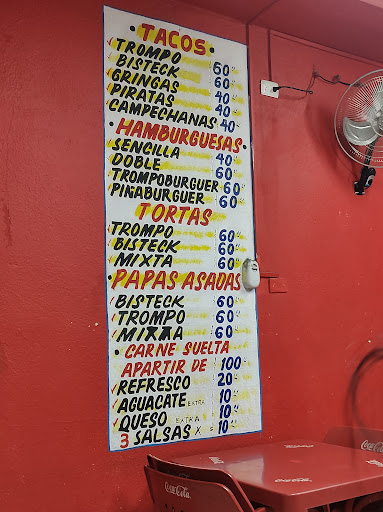 • TACOS •
TROMPO 60
BISTECK 60
GRINGAS 40
PIRATAS 40
CAMPECHANAS 40
• HAMBURGUESAS •
SENCILLA 40
DOBLE 60
TROMPOBURGUER 60
PIÑABURGUER 60
TORTAS
TROMPO 60
BISTECK 60
MIXTA 60
• PAPAS ASADAS •
BISTECK 60
TROMPO 60
MIXTA 60
• CARNE SUELTA
APARTIR DE 100
REFRESCO 20
AGUACATE EXTRA 10
QUESO EXTRA 10
3 SALSAS X $ 10
Coca-Cola
Coca-Cola
Coca-Cola